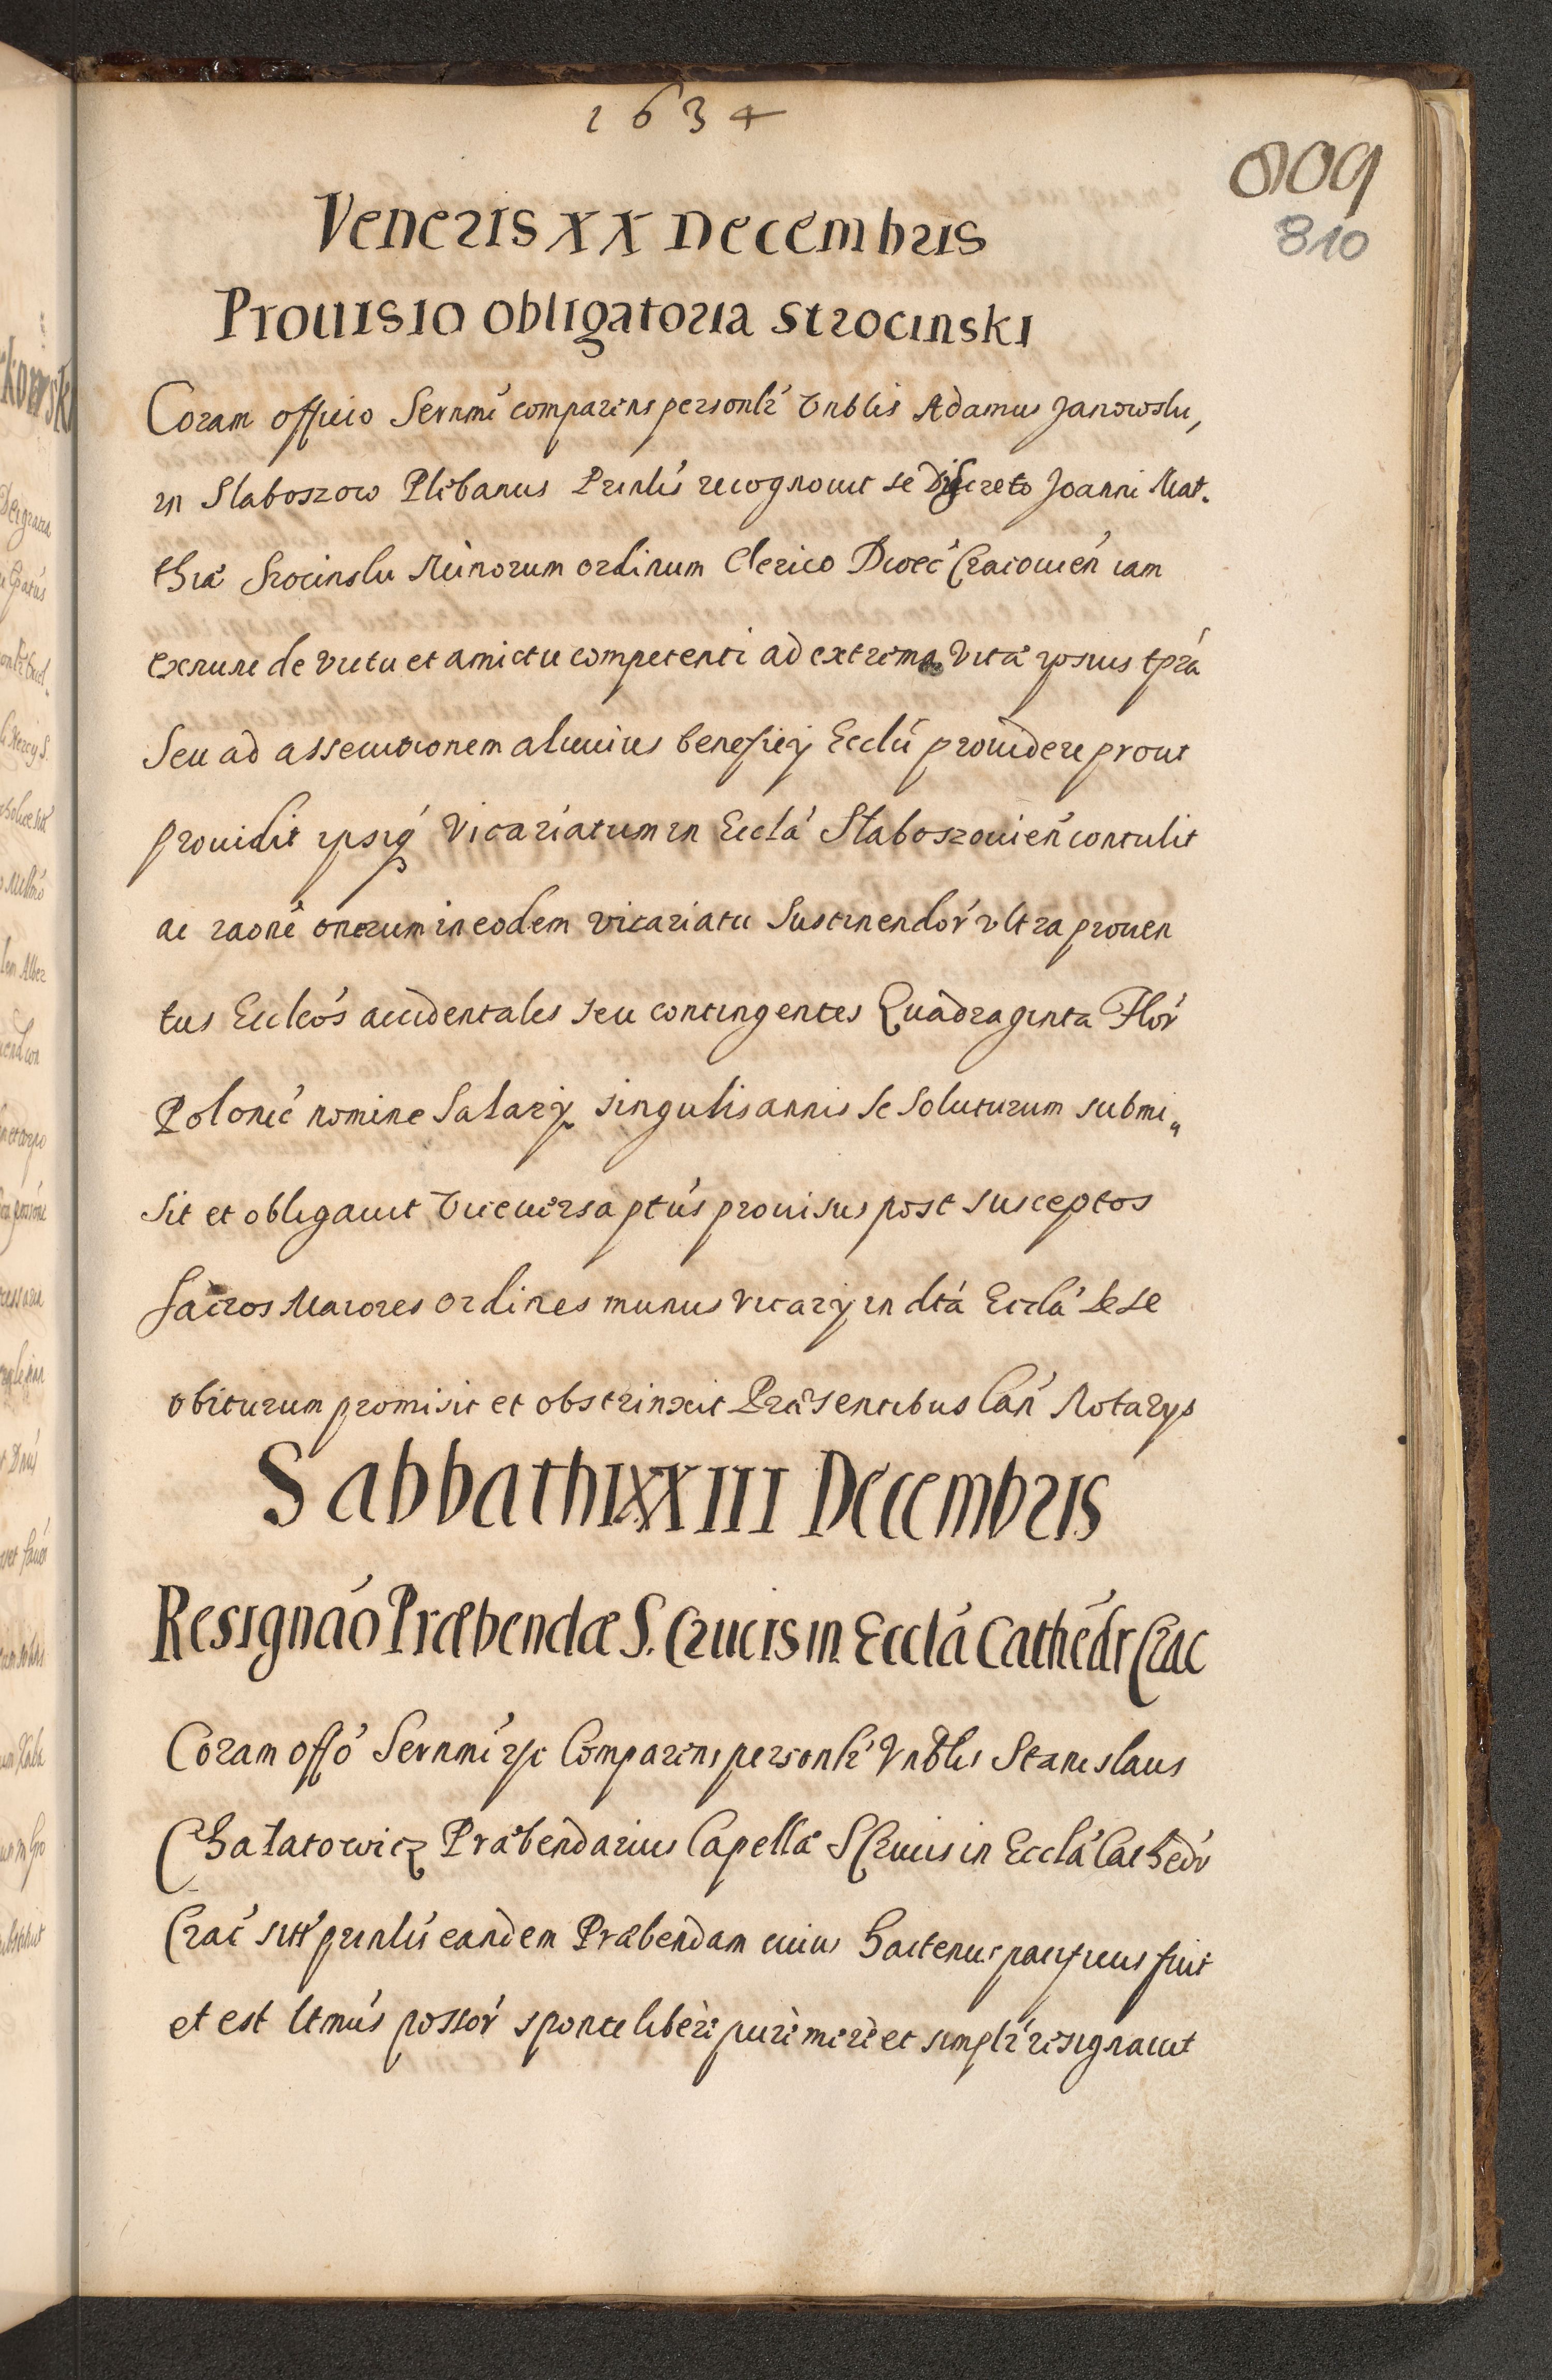 1634
809
810
Veneris XX Decembris
Prouisio obligatoria Strocinski
Coram officio Sernmi comparens personlr Vnblis Adamus Janowski,
in Slaboszow Plebanus Prinlis recognouit se Discreto Joanni Mat.
thiæ Srocinski Minorum ordinum Clerico Diœc Cracouien iam
exnunc de victu et amictu competenti ad extrema vitæ ipsius tpra
Seu ad assecutionem alicuius beneficij Eccln prouidere prout
prouidit ipsiq Vicariatum in Eccla Slaboszouien contulit
ac raone onerum in eodem vicariatu Sustinendor vltra prouen
tus Eccleos accidentales seu contingentes Quadraginta Flor
Polonic nomine Salarij singulis annis se Soluturum submi„
sit et obligauit Viceuersa ptus prouisus post susceptos
sacros Maiores ordines munus vicarij in dta Eccla Sese
obiturum promisit et obstrinxit Præsentibus Can Notarys
Sabbathi XXIII Decembris
Resignao Præbendæ S. Crucis in Eccla Cathedr Crac
Coram offo Sernmi rsc Comparens personlr Vnblis Stanislaus
Chalatowicz Præbendarius Capellæ S Crucis in Eccla Cathedr
Crac prinlis eandem Præbendam cuius hactenus pacificus fuit
et est ltmus possor sponte libere pure mere et simplr resignauit